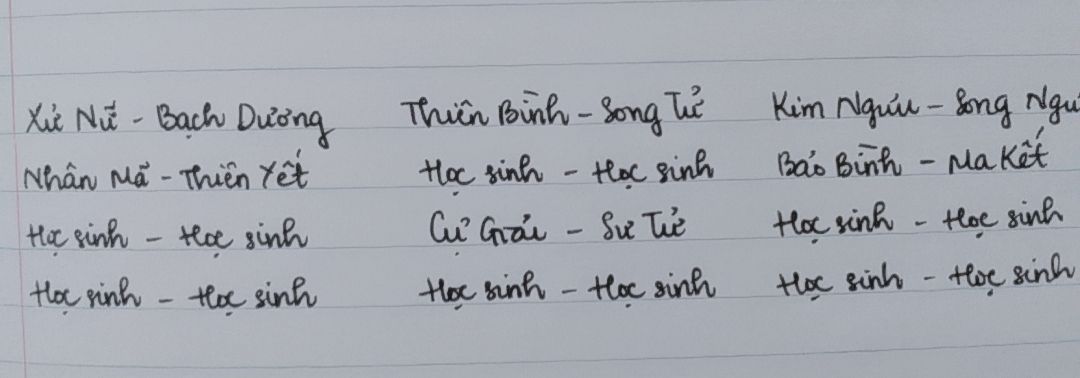 Xử Nữ - Bạch Dương Thiên Bình - Song Tử Kim Ngưu - Song Ngư
Nhân Mã - Thiên Yết Học sinh - Học sinh Bảo Bình - Ma Kết
Học sinh - Học sinh Cự Giải - Sư Tử Học sinh - Học sinh
Học sinh - Học sinh Học sinh - Học sinh Học sinh - Học sinh